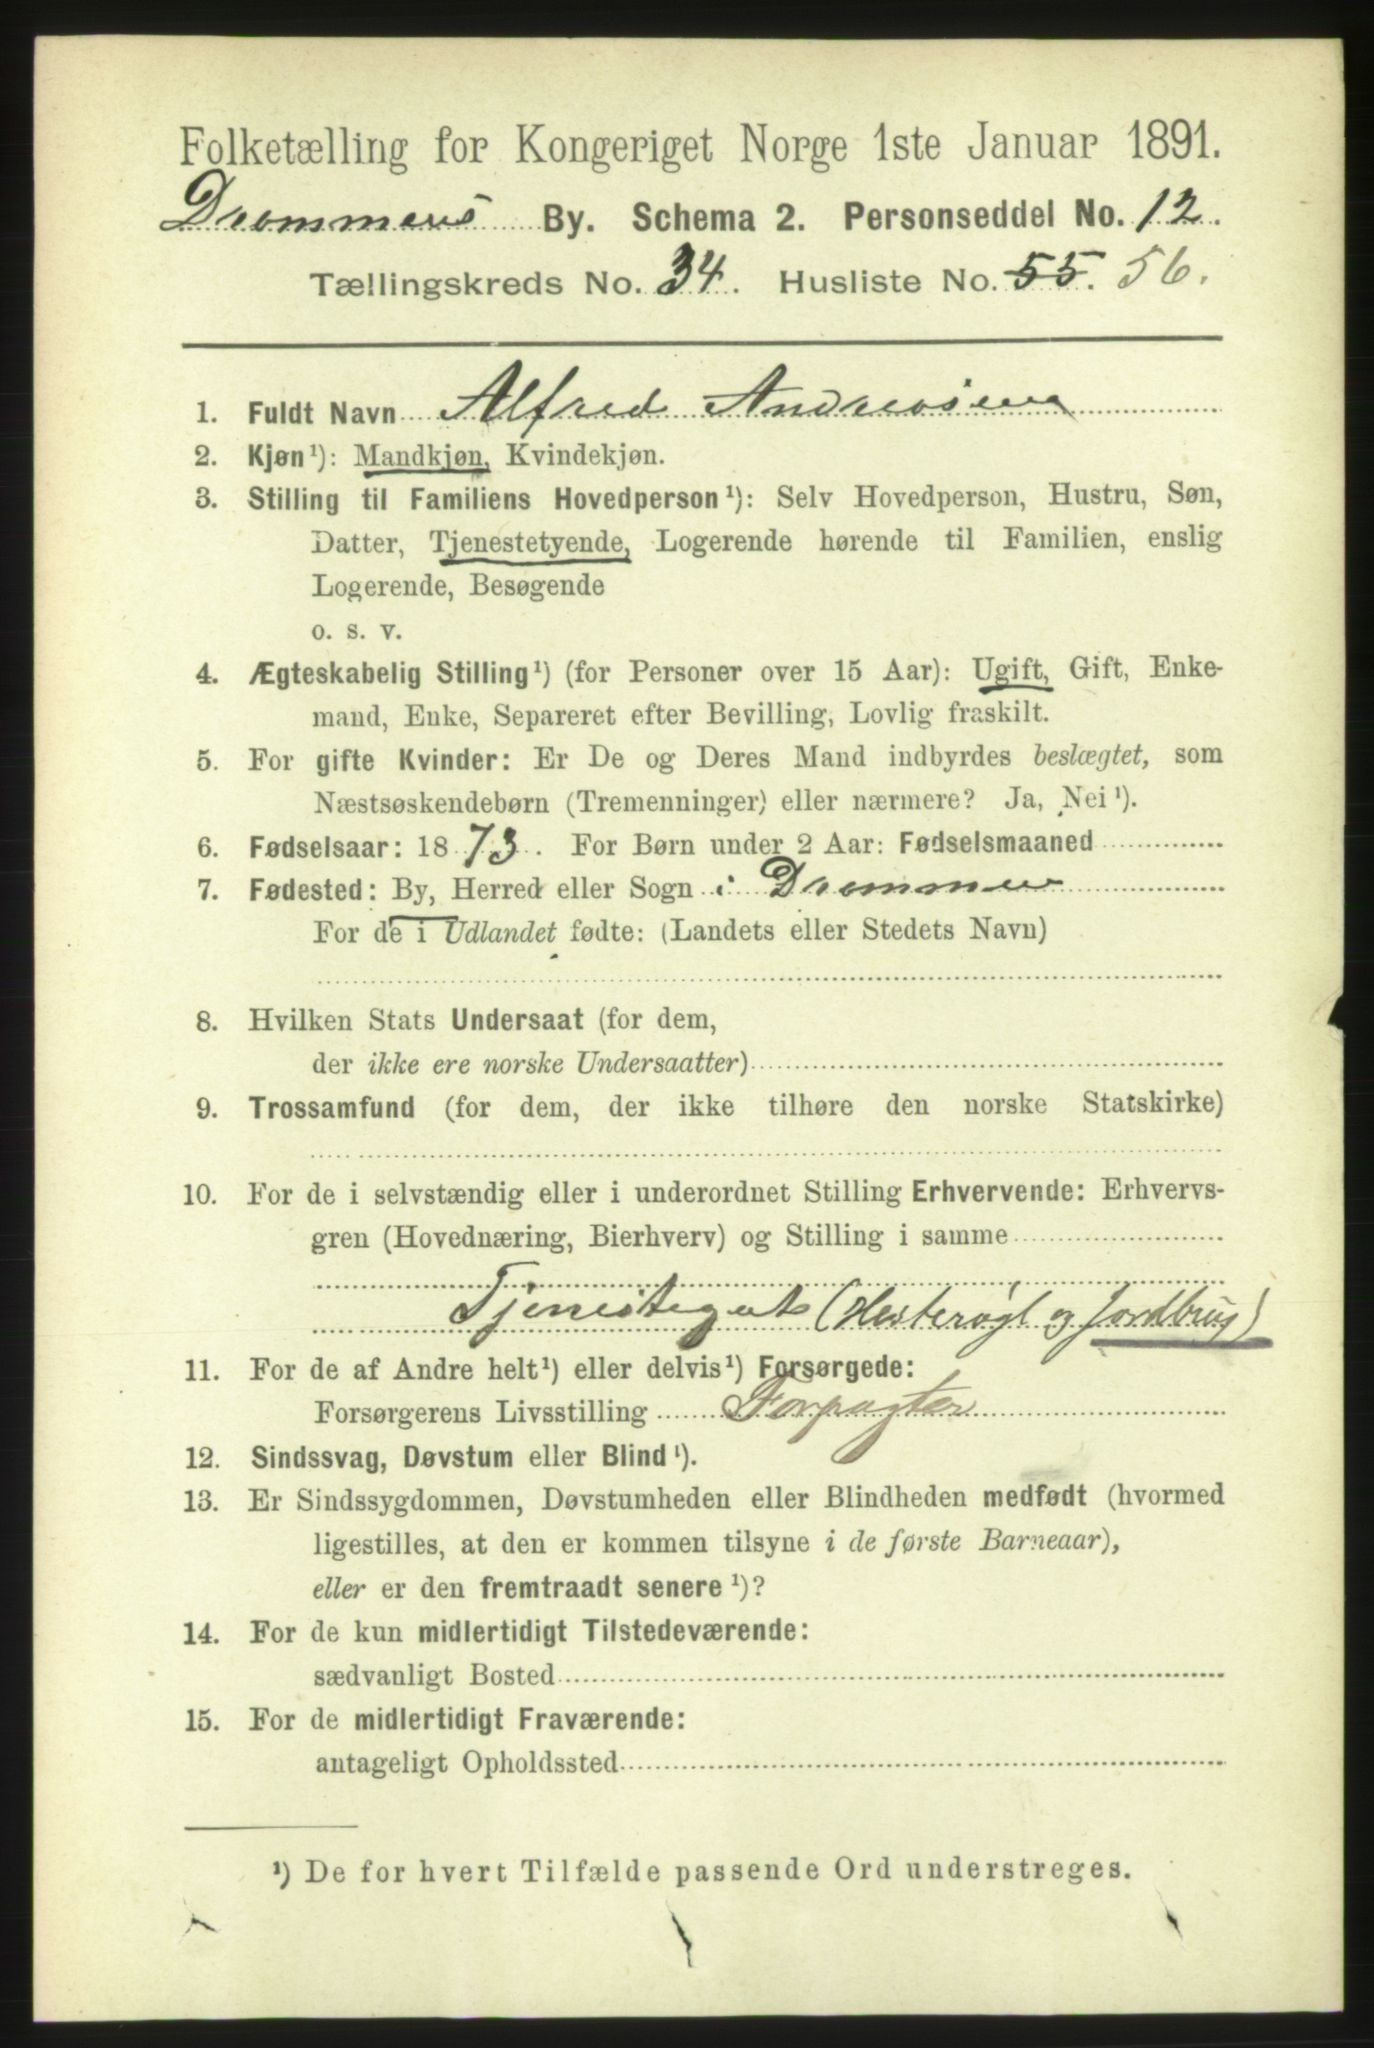 Folketælling for Kongeriget Norge 1ste Januar 1891.
Drammens By. Schema 2. Personseddel No. 12.
Tællingskreds No. 34. Husliste No. 55. 56.
1. Fuldt Navn Alfred Andreasen
2. Kjøn¹): Mandkjøn, Kvindekjøn.
3. Stilling til Familiens Hovedperson¹): Selv Hovedperson, Hustru, Søn,
Datter, Tjenestetyende, Logerende hørende til Familien, enslig
Logerende, Besøgende
o. s. v.
4. Ægteskabelig Stilling¹) (for Personer over 15 Aar): Ugift, Gift, Enke-
mand, Enke, Separeret efter Bevilling, Lovlig fraskilt.
5. For gifte Kvinder: Er De og Deres Mand indbyrdes beslægtet, som
Næstsøskendebørn (Tremenninger) eller nærmere? Ja, Nei¹).
6. Fødselsaar: 1873. For Børn under 2 Aar: Fødselsmaaned
7. Fødested: By, Herred eller Sogn i Drammen
For de i Udlandet fødte: (Landets eller Stedets Navn)
8. Hvilken Stats Undersaat (for dem,
der ikke ere norske Undersaatter)
9. Trossamfund (for dem, der ikke tilhøre den norske Statskirke)
10. For de i selvstændig eller i underordnet Stilling Erhvervende: Erhvervs-
gren (Hovednæring, Bierhverv) og Stilling i samme
Tjenestegut (Hesterøgt og Jordbrug)
11. For de af Andre helt¹) eller delvis¹) Forsørgede:
Forsørgerens Livsstilling Forpagter
12. Sindssvag, Døvstum eller Blind¹).
13. Er Sindssygdommen, Døvstumheden eller Blindheden medfødt (hvormed
ligestilles, at den er kommen tilsyne i de første Barneaar),
eller er den fremtraadt senere¹)?
14. For de kun midlertidigt Tilstedeværende:
sædvanligt Bosted
15. For de midlertidigt Fraværende:
antageligt Opholdssted
¹) De for hvert Tilfælde passende Ord understreges.